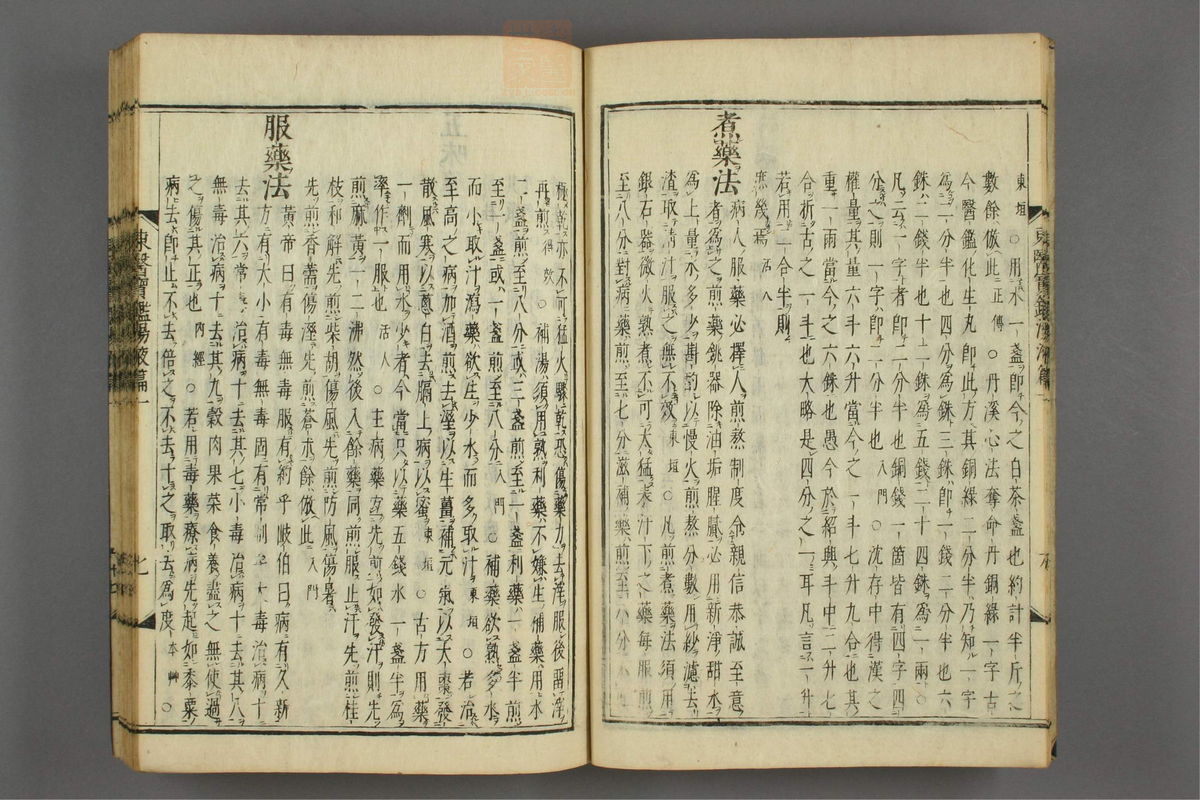 東垣○用水一盞卽今之白茶盞也約計半斤之
數餘倣此正傳○丹溪心法奪命丹銅綠一字古
今醫鑑化生丸卽此方其銅綠二分半乃知一字
爲二分半也四分爲銖三銖卽一錢二分半也六
銖二錢半也十二銖爲五錢二十四銖爲一兩○
凡云一字者二分半也銅錢一箇皆有四字四
分之則一字卽二分半也入門○沈存中得漢之
權量其量六斗六升當今之一斗七升九合也其
重一兩當今之六銖也愚今於紹興斗中二升七
合折古之一斗也大略是四分之一耳凡言一升
若用二合半則
庶幾焉活人
煮藥法
病人服藥必擇人煎熬制度令親信恭誠至意
者爲之煎藥銚器除油垢腥膩必用新淨甜水
爲上量水多少斟酌以慢火煎熬分數用紗濾去
渣取淸汁服之無不效東垣○凡煎煮藥法須用
銀石器微火熟煮不可太猛表汁下之藥每服煎
至八分對病藥煎至七分滋補藥煎至六分不
極乾亦不可猛火驟乾恐傷藥力去滓服後留滓
再煎得效○補湯須用熟利藥不嫌生補藥用水
二盞煎至八分或三盞煎至一盞利藥一盞半煎
至一盞或一盞煎至八分入門○補藥欲熟多水
而小取汁瀉藥欲生少水而多取汁東垣○若治
至高之病加酒煎去濕以生薑補元氣以大棗發
散風寒以葱白去膈上病以蜜東垣○古方用藥
一劑而用水少者今當只以藥五錢水一盞半爲
率作一服也活人○主病藥宜先煎如發汗則先
煎麻黃一二沸然後入餘藥同煎服止汗先煎桂
枝和解先煎柴胡傷風先煎防風傷暑
先煎香薷傷濕先煎蒼朮餘倣此入門
服藥法
黃帝曰有毒無毒服有約乎岐伯曰病有久新
方有大小有毒無毒固有常制矣大毒治病十
去其六常毒治病十去其七小毒治病十去其八
無毒治病十去其九穀肉果菜食養盡之無使過
之傷其正也內經○若用毒藥療病先起如黍粟
病去卽止不去倍之不去十之取去爲度本艸○
東醫寶鑑湯液篇一